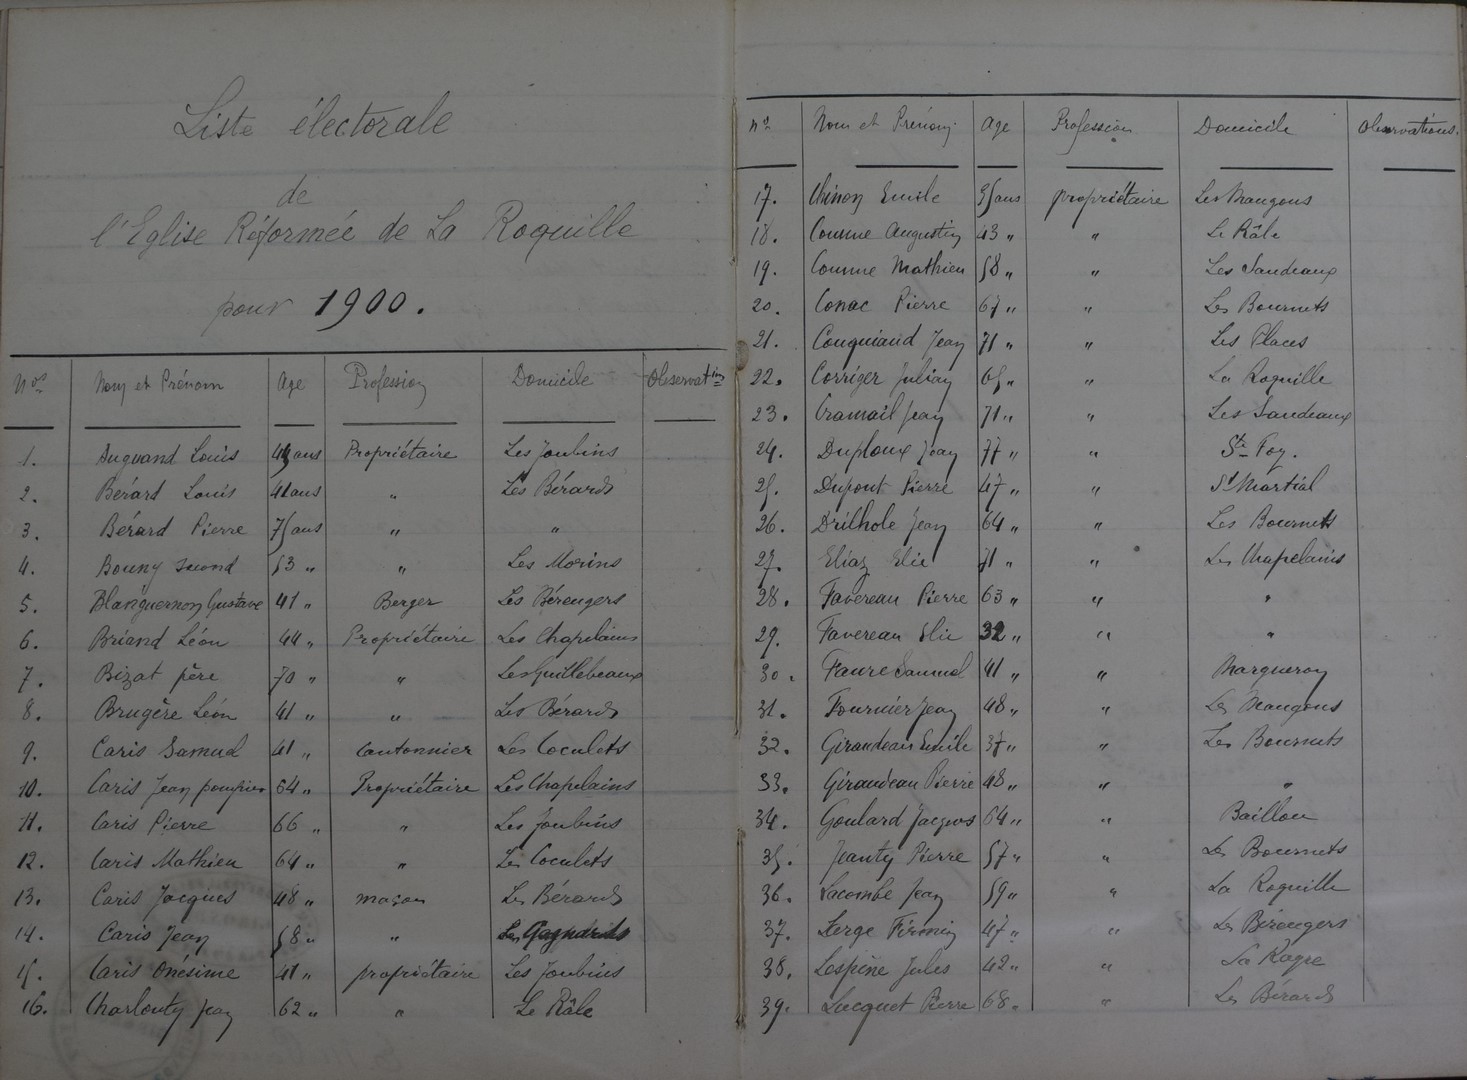 Liste électorale
de
l'Eglise Réformée de La Roquille
pour 1900.
Nos Nom et Prénom Age Profession Domicile Observation
1. Duquand Louis ans Propriétaire Les Joubins
2. Bérard Louis 41 ans " Les Bérards
3. Bérard Pierre 75 ans " "
4. Bouny Second 53 " " Les Morins
5. Blanguernon Gustave 41 " Berger Les Bérengers
6. Briand Léon 44 " Propriétaire Les Chapelains
7. Bizat père 70 " " Les Guillebeaux
8. Brugère Léon 41 " " Les Bérards
9. Caris Samuel 41 " Cantonnier Les Coculets
10. Caris Jean pompier 64 " Propriétaire Les Chapelains
11. Caris Pierre 66 " " Les Joubins
12. Caris Mathieu 64 " " Les Coculets
13. Caris Jacques 48 " maçon Les Bérards
14. Caris Jean 58 " " Les
15. Caris Onésime 41 " propriétaire Les Joubins
16. Charlouty Jean 62 " " Le Râle
Nos Nom et Prénom Age Profession Domicile Observations.
17. Chinon Emile 35 ans propriétaire Les Maugons
18. Coume Augustin 43 " " Le Râle
19. Coume Mathieu 58 " " Les Sandeaux
20. Conac Pierre 67 " " Les Bournets
21. Couquiaud Jean 71 " " Les Places
22. Corriger Julien 65 " " La Roquille
23. Cramail Jean 71 " " Les Sandeaux
24. Duploux Jean 77 " " Ste Foy.
25. Dupont Pierre 47 " " St Martial
26. Drilhole Jean 64 " " Les Bournets
27. Eliaz Elie 71 " " Les Chapelains
28. Favereau Pierre 63 " " "
29. Favereau Elie 32 " " "
30. Faure Samuel 41 " " Margueron
31. Fournier Jean 48 " " Les Maugons
32. Giraudeau Emile 37 " " Les Bournets
33. Giraudeau Pierre 48 " " "
34. Goulard Jacques 64 " " Baillou
35. Jeanty Pierre 57 " " Les Bournets
36. Lacombe Jean 59 " " La Roquille
37. Lerge Firmin 47 " " Les Bérengers
38. Lespine Jules 42 " " La Rague
39. Lucquet Pierre 68 " " Les Bérards